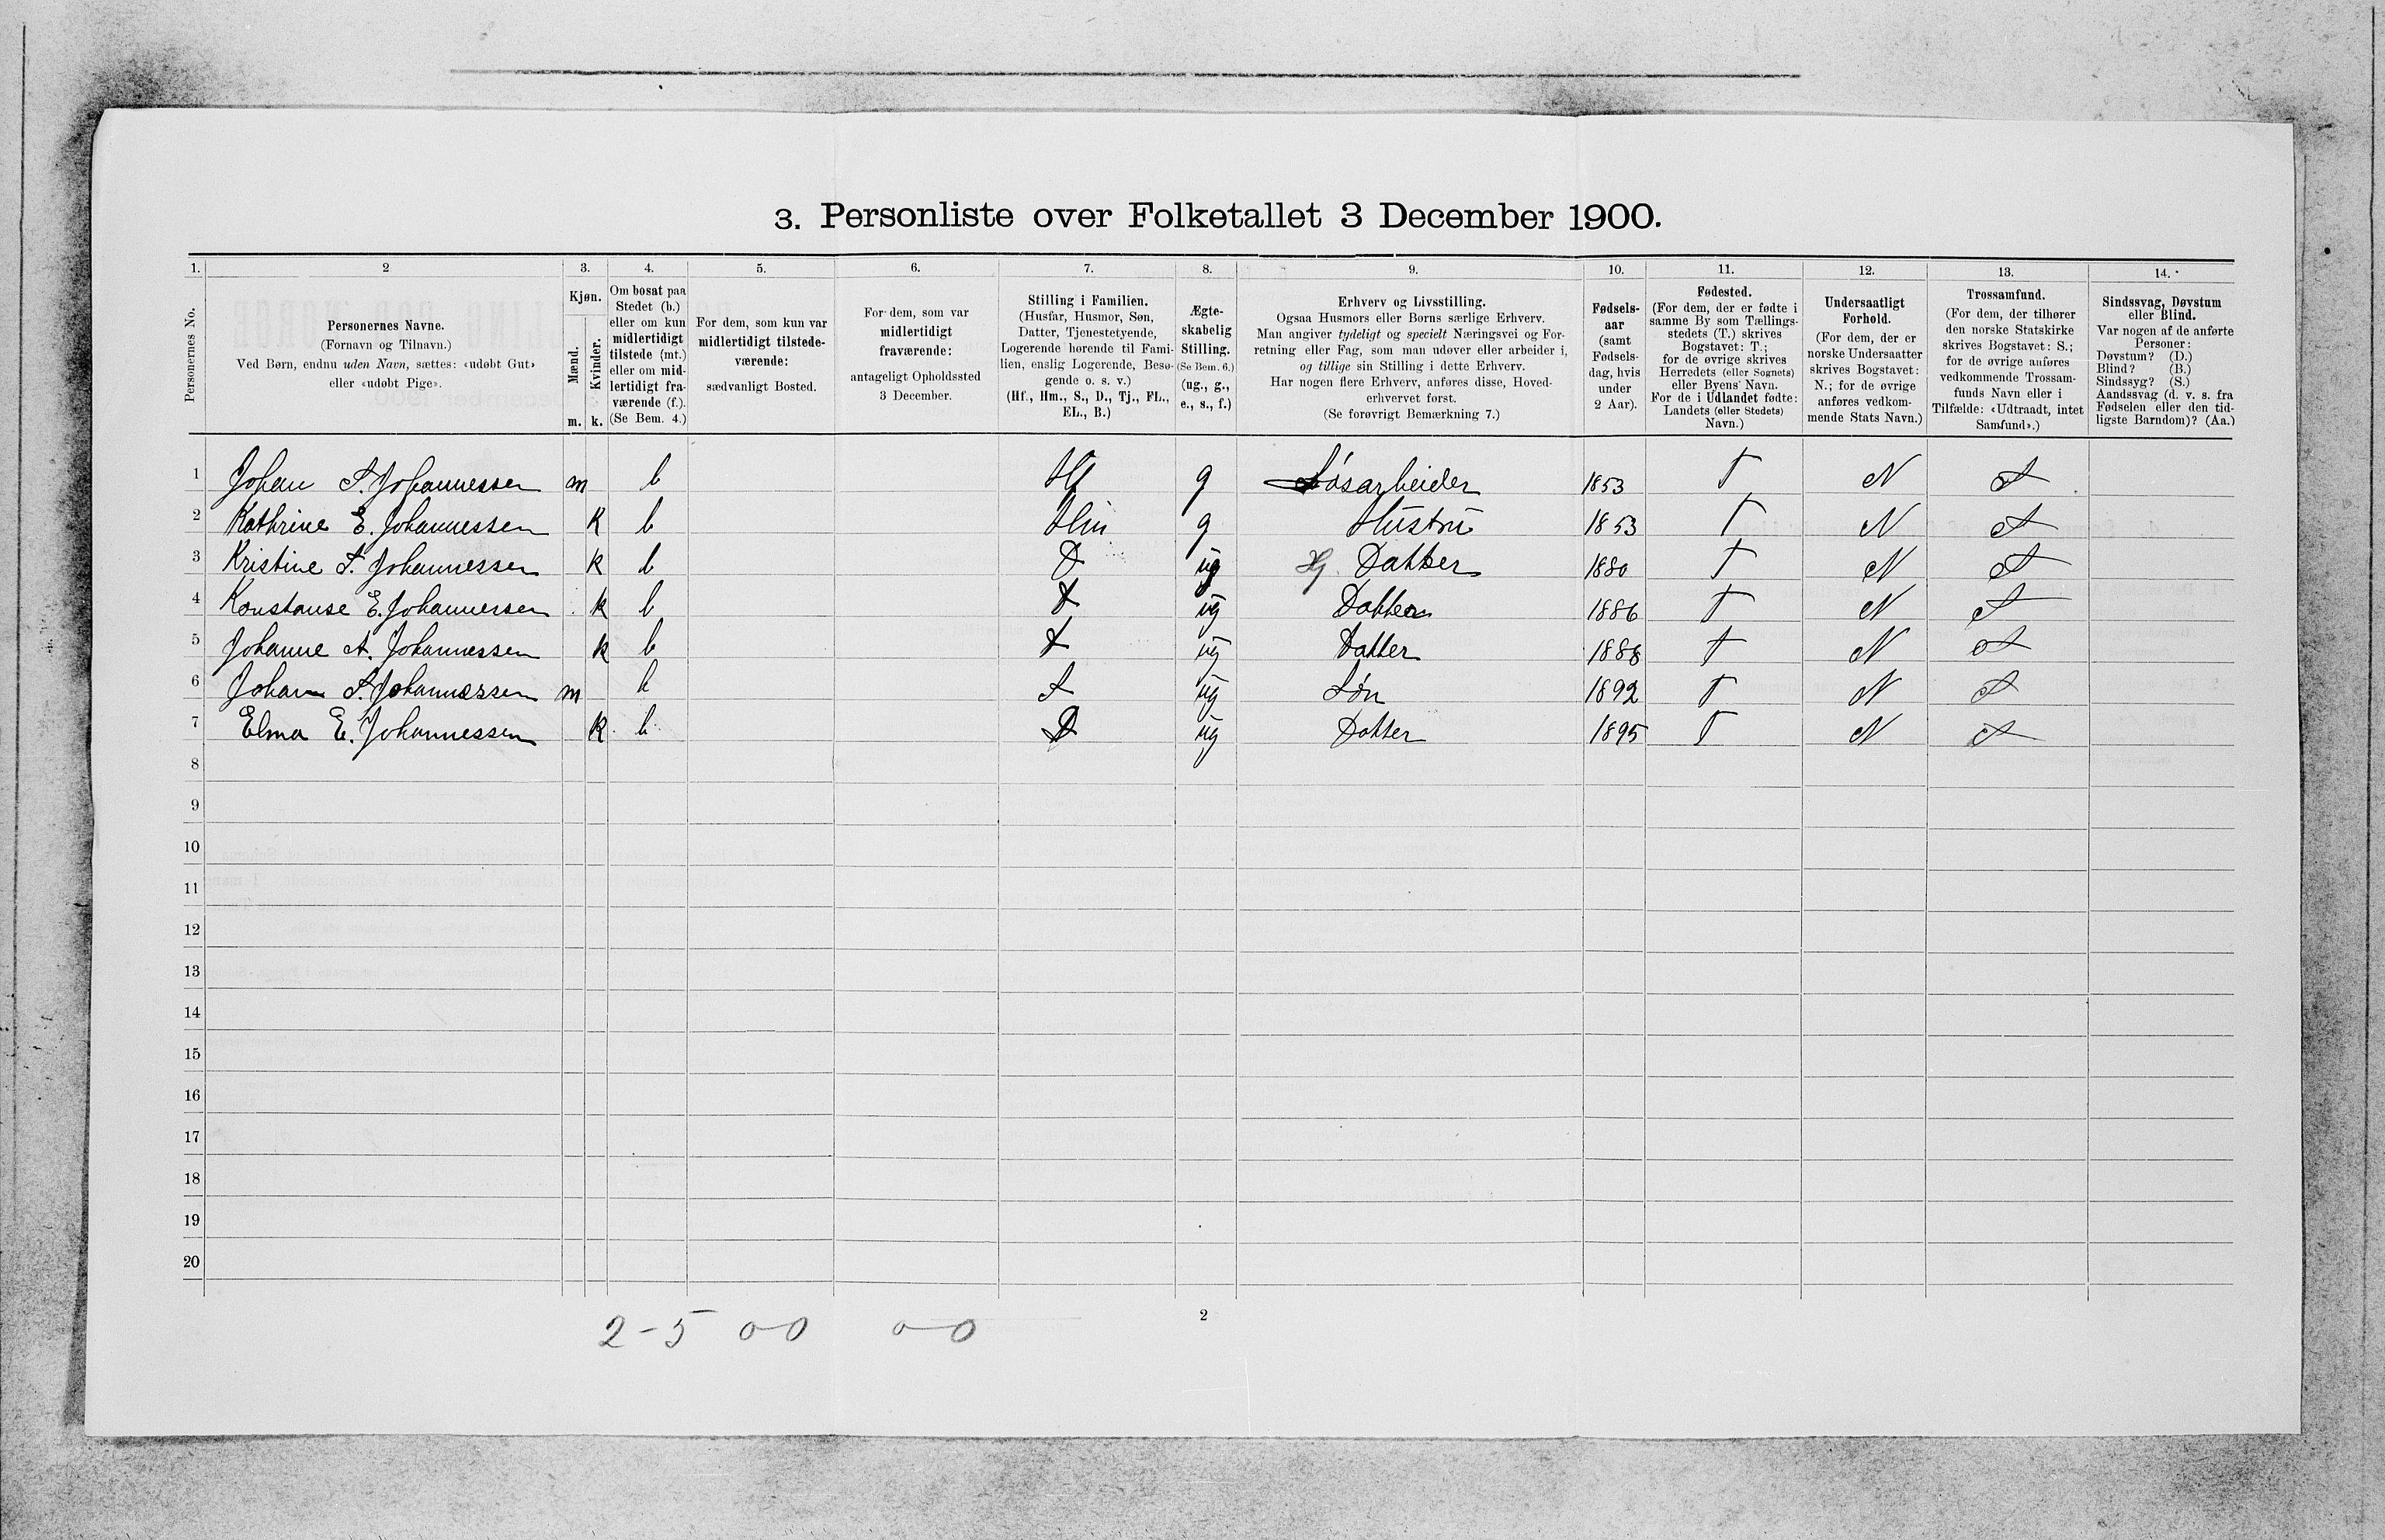 3. Personliste over Folketallet 3 December 1900.
1. 2 3. 4. 5. 6. 7. 8. 9. 10. 11. 12. 13. 14.
Personernes No.
Personernes Navne.
(Fornavn og Tilnavn.)
Ved Børn, endnu uden Navn, sættes: «udøbt Gut»
eller «udøbt Pige».
Kjøn.
Mænd.
Kvinder.
m. k.
Om bosat paa
Stedet (b.)
eller om kun
midlertidigt
tilstede (mt.)
eller om mid-
lertidigt fra-
værende (f.).
(Se Bem. 4.)
For dem, som kun var
midlertidigt tilstede-
værende:
sædvanligt Bosted.
For dem, som var
midlertidigt
fraværende:
antageligt Opholdssted
3 December.
Stilling i Familien.
(Husfar, Husmor, Søn,
Datter, Tjenestetyende,
Logerende hørende til Fami-
lien, enslig Logerende, Besø-
gende o. s. v.)
(Hf., Hm., S., D., Tj., FL.,
EL., B.)
Ægte-
skabelig
Stilling.
(Se Bem. 6.)
(ug., g.,
e., s., f.)
Erhverv og Livsstilling.
Ogsaa Husmors eller Børns særlige Erhverv.
Man angiver tydeligt og specielt Næringsvei og For-
retning eller Fag, som man udøver eller arbeider i,
og tillige sin Stilling i dette Erhverv.
Har nogen flere Erhverv, anføres disse, Hoved-
erhvervet først.
(Se forøvrigt Bemærkning 7.)
Fødsels-
aar
(samt
Fødsels-
dag, hvis
under
2 Aar).
Fødested.
(For dem, der er fødte i
samme By som Tællings-
stedets (T.) skrives
Bogstavet: T.;
for de øvrige skrives
Herredets (eller Sognets)
eller Byens' Navn.
For de i Udlandet fødte:
Landets (eller Stedets)
Navn.)
Undersaatligt
Forhold.
(For dem, der er
norske Undersaatter
skrives Bogstavet:
N.; for de øvrige
anføres vedkom-
mende Stats Navn.)
Trossamfund.
(For dem, der tilhører
den norske Statskirke
skrives Bogstavet: S.;
for de øvrige anføres
vedkommende Trossam-
funds Navn eller i
Tilfælde: «Udtraadt, intet
Samfund».)
Sindssvag, Døvstum
eller Blind.
Var nogen af de anførte
Personer:
Døvstum? (D.)
Blind? (B.)
Sindssyg? (S.)
Aandssvag (d. v. s. fra
Fødselen eller den tid-
ligste Barndom)? (Aa.)
1 Johan S. Johannessen m b Hf g Løsarbeider 1853 T N S
2 Kathrine E. Johannessen k b Hm g Hustru 1853 T N S
3 Kristine S. Johannessen k b D ug Hj. Datter 1880 T N S
4 Konstanse E. Johannersen k b D ug Datter 1886 T N S
5 Johanne A. Johannessen k b D ug Datter 1888 T N S
6 Johan S. Johannessen m b S ug Søn 1892 T N S
7 Elma E. Johannessen k b D ug Datter 1895 T N S
8
9
10
11
12
13
14
15
16
17
18
19
20
2-5 0-0 0-0
2